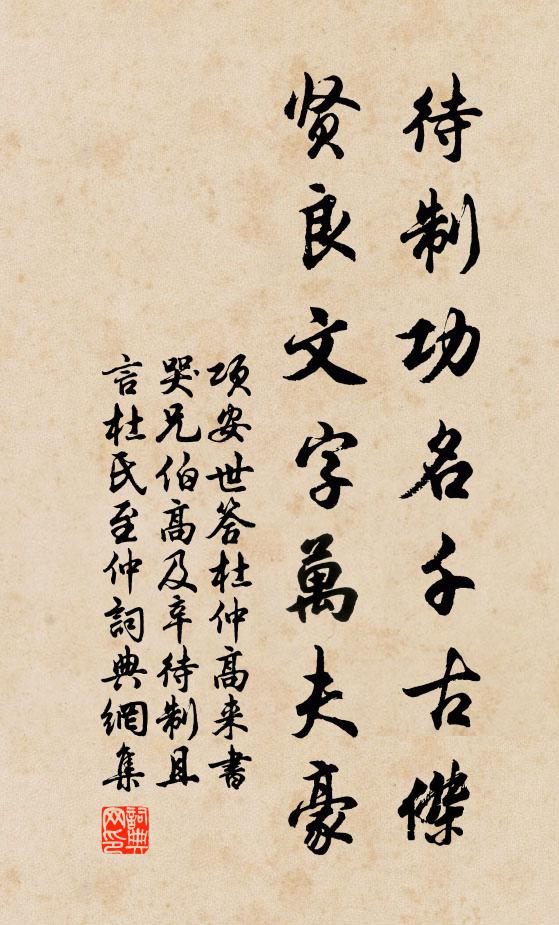 待制功名千古傑
贤良文字萬夫豪
项安世答杜仲高来書
哭兄伯高及辛待制且
言杜氏至仲詞典網集
詞典
网印